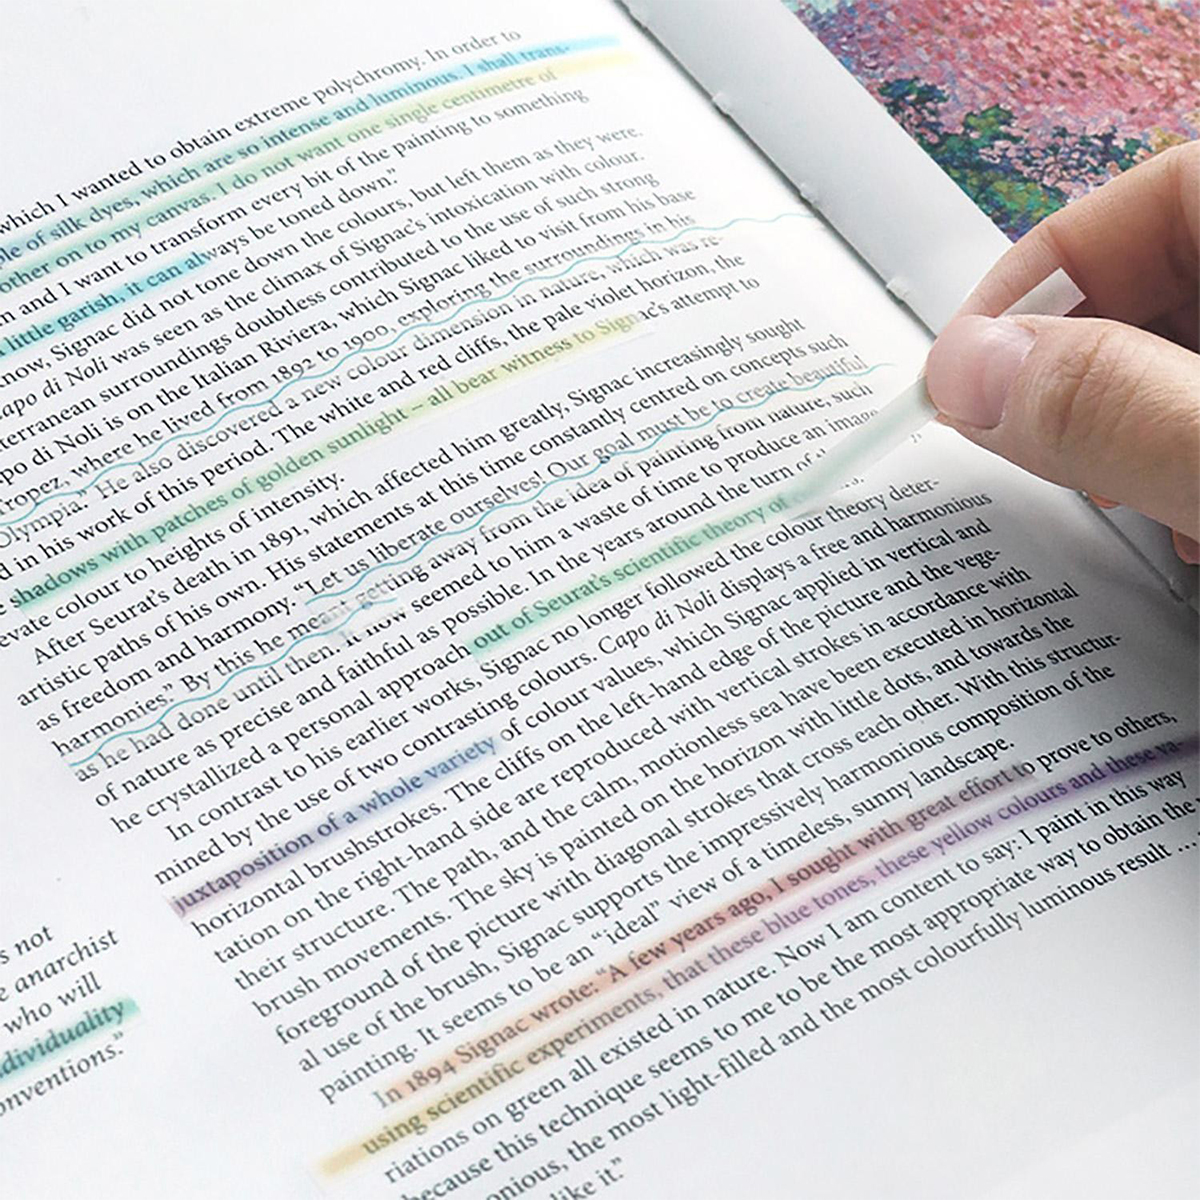 which I wanted to obtain extreme polychromy. In order to
of silk dyes, which are so intense and luminous. I shall trans-
other on to my canvas. I do not want one single centimetre of
and I want to transform every bit of the painting to something
little garish, it can always be toned down."
now, Signac did not tone down the colours, but left them as they were.
Capo di Noli was seen as the climax of Signac's intoxication with colour.
terranean surroundings doubtless contributed to the use of such strong
po di Noli is on the Italian Riviera, which Signac liked to visit from his base
Tropez, where he lived from 1892 to 1900, exploring the surroundings in his
Olympia." He also discovered a new colour dimension in nature, which was re-
d in his work of this period. The white and red cliffs, the pale violet horizon, the
shadows with patches of golden sunlight – all bear witness to Signac's attempt to
evate colour to heights of intensity.
After Seurat's death in 1891, which affected him greatly, Signac increasingly sought
artistic paths of his own. His statements at this time constantly centred on concepts such
as freedom and harmony. "Let us liberate ourselves! Our goal must be to create beautiful
harmonies." By this he meant getting away from the idea of painting from nature, such
as he had done until then. It now seemed to him a waste of time to produce an image
of nature as precise and faithful as possible. In the years around the turn of
he crystallized a personal approach out of Seurat's scientific theory of
In contrast to his earlier works, Signac no longer followed the colour theory deter-
mined by the use of two contrasting colours. Capo di Noli displays a free and harmonious
juxtaposition of a whole variety of colour values, which Signac applied in vertical and
horizontal brushstrokes. The cliffs on the left-hand edge of the picture and the vege-
tation on the right-hand side are reproduced with vertical strokes in accordance with
their structure. The path, and the calm, motionless sea have been executed in horizontal
brush movements. The sky is painted on the horizon with little dots, and towards the
foreground of the picture with diagonal strokes that cross each other. With this structur-
al use of the brush, Signac supports the impressively harmonious composition of the
painting. It seems to be an "ideal" view of a timeless, sunny landscape.
In 1894 Signac wrote: "A few years ago, I sought with great effort to prove to others,
using scientific experiments, that these blue tones, these yellow colours and these va-
riations on green all existed in nature. Now I am content to say: I paint in this way
because this technique seems to me to be the most appropriate way to obtain the
onious, the most light-filled and the most colourfully luminous result ...
like it."
s not
e anarchist
who will
dividuality
onventions."